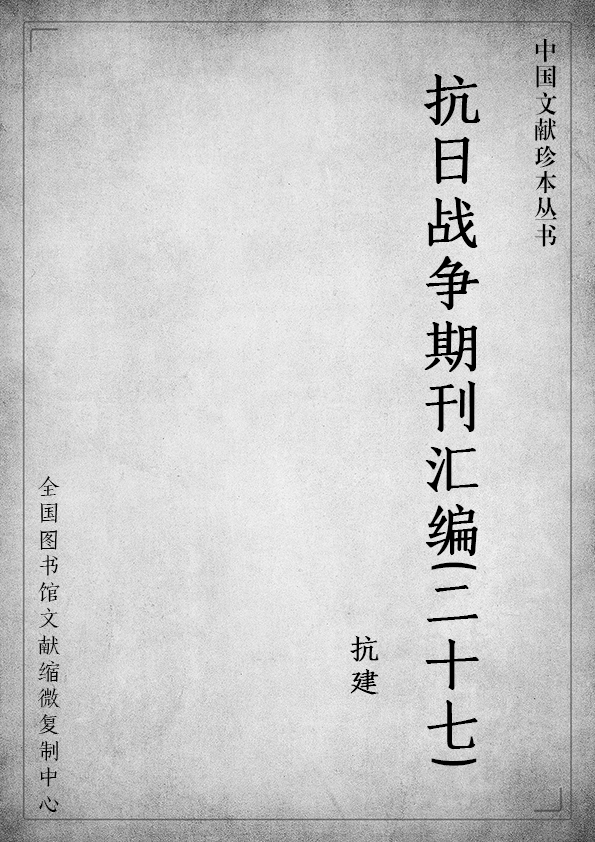 中国文献珍本丛书
抗日战争期刊汇编(二十七)
抗建
全国图书馆文献缩微复制中心